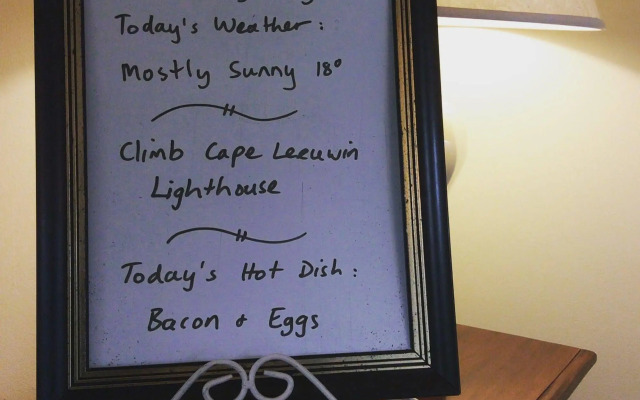 Today's Weather:
Mostly Sunny 18°
Climb Cape Leeuwin
Lighthouse
Today's Hot Dish:
Bacon & Eggs